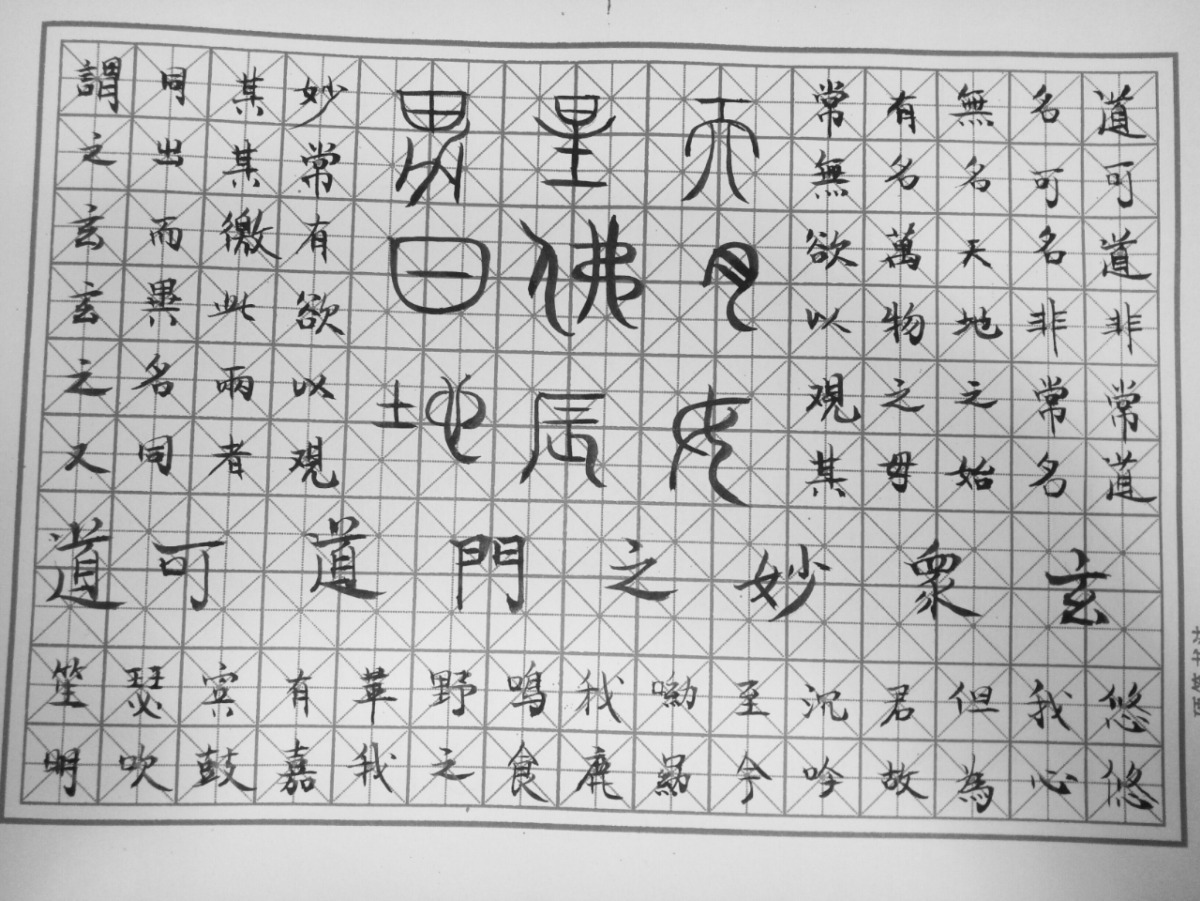 道可道非常道
名可名非常名
無名天地之始
有名萬物之母
常無欲以覌其
天月
星佛辰
日地
妙常有欲以覌
其其徼此兩者
同出而異名同
謂之玄玄之又
玄衆妙之門道可道
悠悠
我心
但為
君故
沉吟
至今
呦呦
我鹿
鳴食
野之
苹我
有嘉
賓鼓
瑟吹
笙明